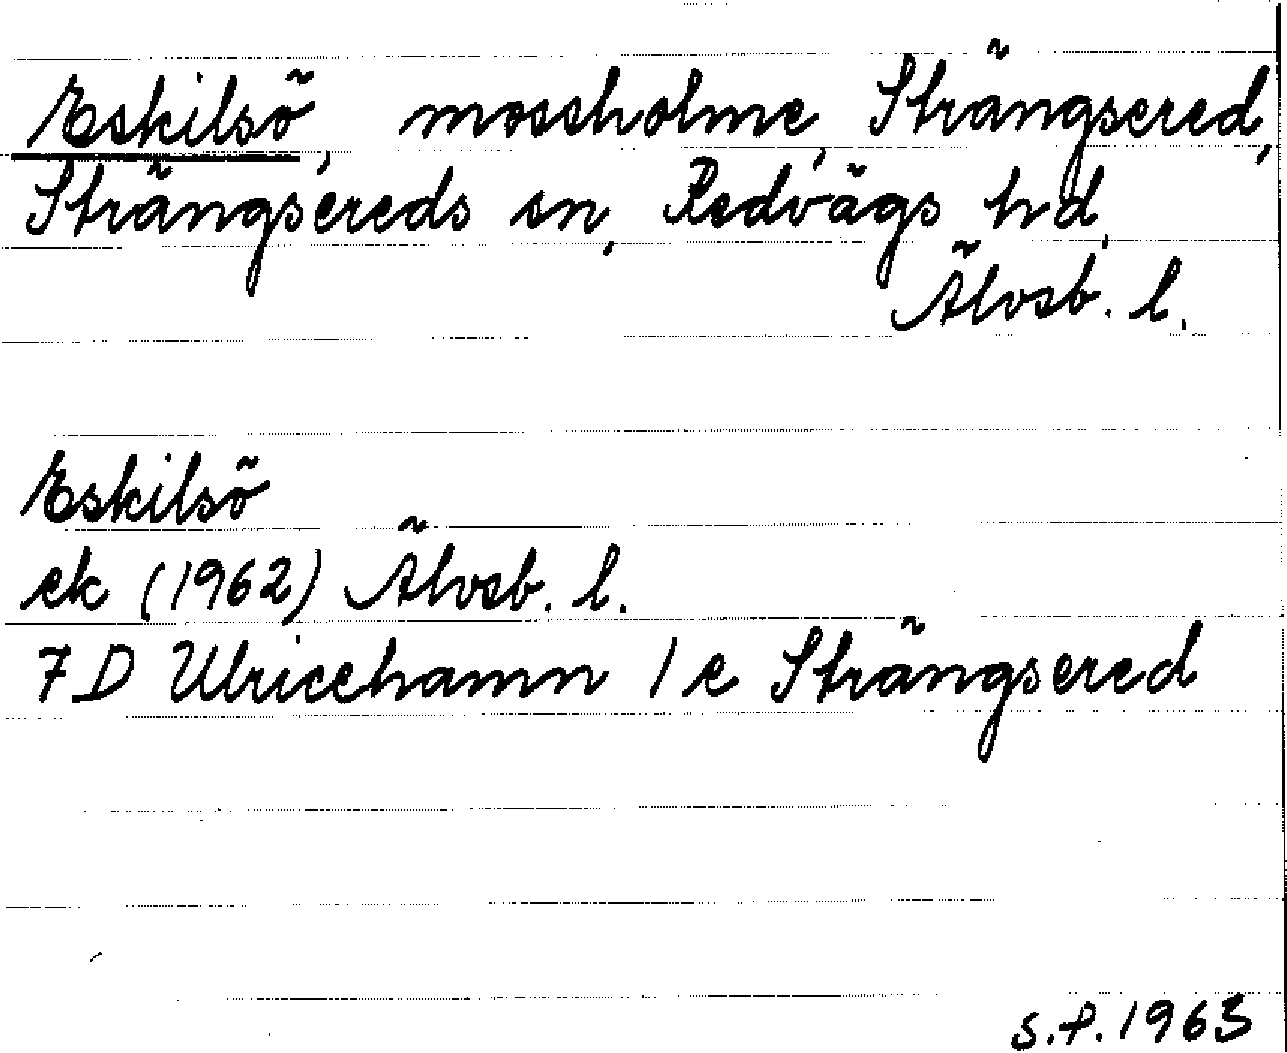 Eskilsö, mosseholme, Strängsered,
Strängsereds sn, Redvägs hd,
Älvsb. l.
Eskilsö
ek (1962) Älvsb. l.
7 D Ulricehamn 1 e Strängsered
S.F. 1963